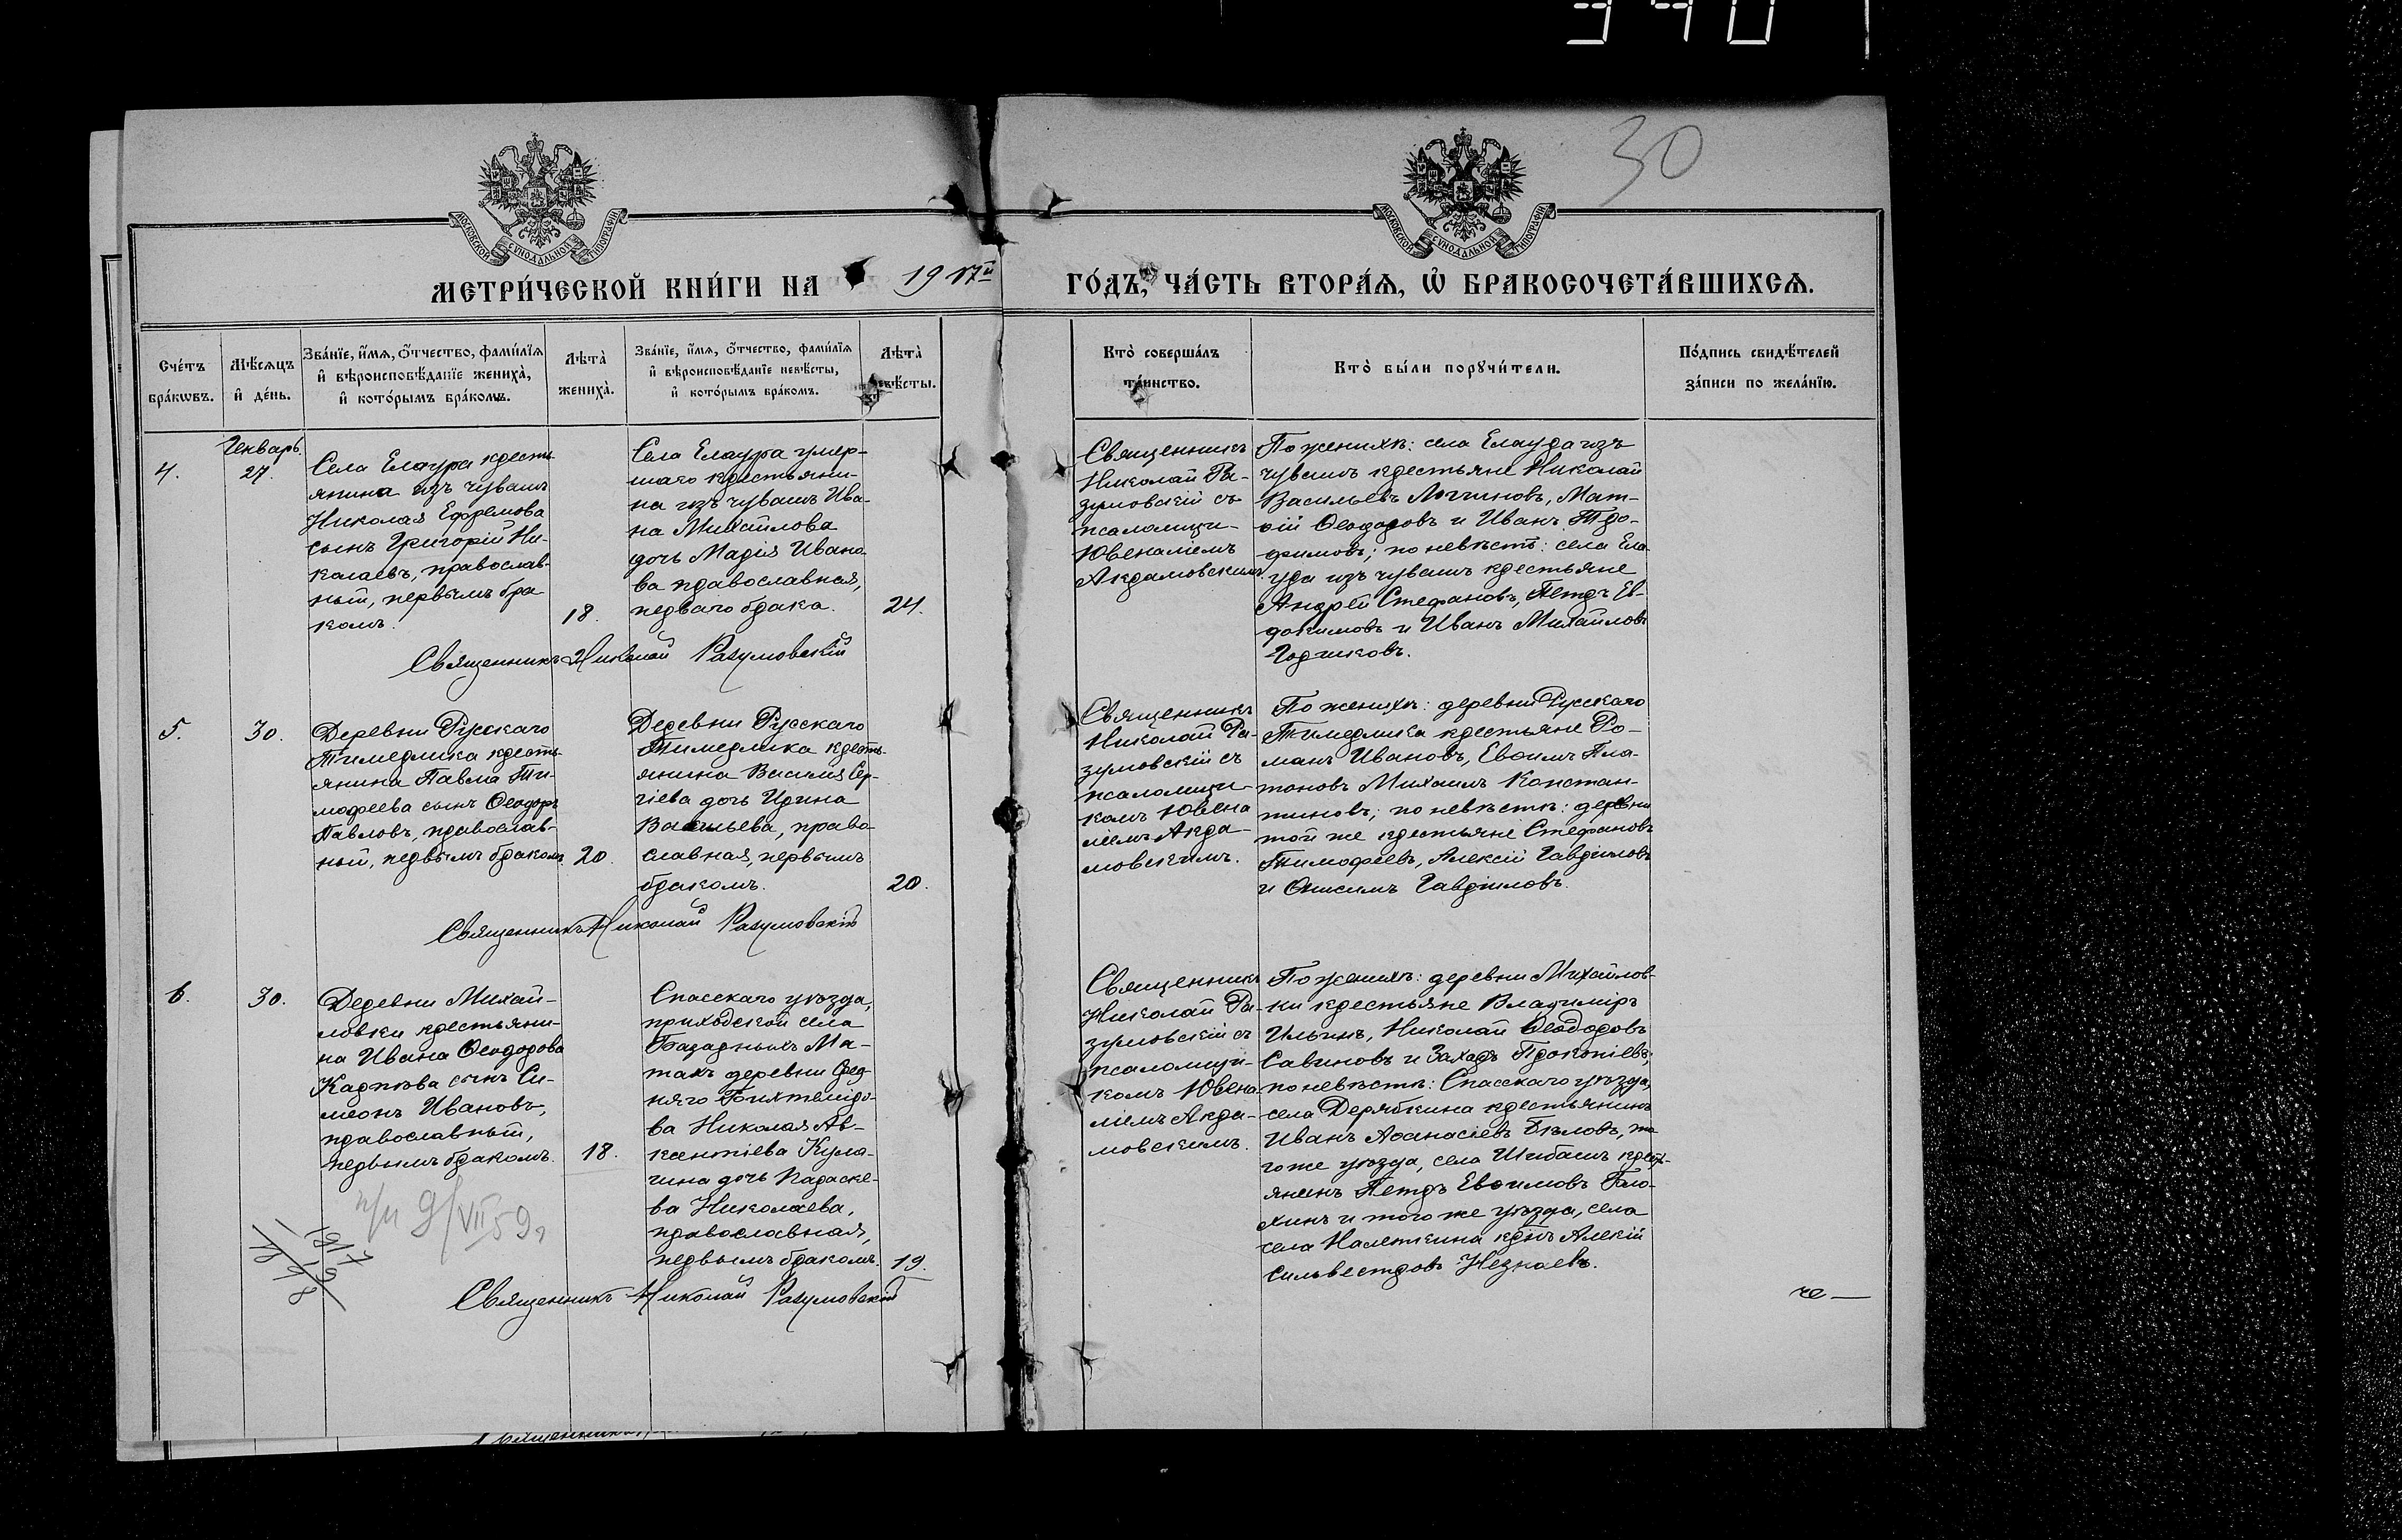 340
30
МОСКОВСКОЙ СѴНОДАЛЬНОЙ ТИПОГРАФІИ
МОСКОВСКОЙ СѴНОДАЛЬНОЙ ТИПОГРАФІИ
МЕТРИ́ЧЕСКОЙ КНИ́ГИ НА 1917й ГО́ДЪ, ЧА́СТЬ ВТОРА́Ѧ, Ѡ҆ БРАКОСОЧЕТА́ВШИХСѦ.
Сче́тъ
бра́кѡвъ.
Мѣ́сѧцъ
и҆ де́нь.
Зва́нїе, и҆́мѧ, ѻ҆́тчество, фами́лїѧ
и҆ вѣроисповѣ́данїе жениха̀,
и҆ кото́рымъ бра́комъ.
Лѣта̀
жениха̀.
Зва́нїе, и҆́мѧ, ѻ҆́тчество, фами́лїѧ
и҆ вѣроисповѣ́данїе невѣ́сты,
и҆ кото́рымъ бра́комъ.
Лѣта̀
невѣ́сты.
Кто̀ соверша́лъ
та́инство.
Кто̀ бы́ли порꙋчи́тели.
По́дпись свидѣ́телей
за́писи по жела́нїю.
4.
Генварь.
27.
Села Елаура кресть-
янина изъ чувашъ
Николая Ефремова
сынъ Григорій Ни-
колаевъ, православ-
ный, первымъ бра
комъ.
18.
Села Елаура умер-
шаго крестьяни-
на изъ чувашъ Ива-
на Михайлова
дочь Марія Ивано-
ва православная,
перваго брака.
24.
Священникъ
Николай Ра-
зумовскій съ
псаломщи-
Ювеналіемъ
Акрамовскимъ.
По женихѣ: села Елаура изъ
чувашъ крестьяне Николай
Васильевъ Логиновъ, Мат-
ѳій Ѳеодоровъ и Иванъ Тро-
фимовъ; по невѣстѣ: села Ела-
ура изъ чувашъ крестьяне
Андрей Стефановъ, Петръ Ев-
докимовъ и Иванъ Михайловъ
Священникъ Николай Разумовскій
5.
30.
Деревни Русскаго
Тимерлика кресть-
янина Павла Ти-
мофеева сынъ Ѳеодоръ
Павловъ, православ-
ный, первымъ бракомъ.
20.
Деревни Русскаго
Тимерлика кресть-
янина Василія Сер-
гіева дочь Ирина
Васильева, право
славная, первымъ
бракомъ.
20.
Священникъ
Николай Ра-
зумовскій съ
псаломщи-
комъ Ювена
ліемъ Акра-
мовскимъ.
По женихѣ: деревни Русскаго
Тимерлика крестьяне Ро-
манъ Ивановъ, Евѳимъ Пла-
тоновъ Михаилъ Констан-
тиновъ; по невѣстѣ: деревни
той же крестьяне Стефановъ
Тимофеевъ, Алексій Гавріиловъ
и Онисимъ Гавріиловъ.
Священникъ Николай Разумовскій
6.
30.
Деревни Михай-
ловки крестьяни-
на Ивана Ѳеодорова
сынъ Си-
меонъ Ивановъ,
православный,
первымъ бракомъ.
18.
Спасскаго уѣзда,
приходской села
Базарныхъ Ма-
такъ деревни Сред-
няго Биктемиро-
ва Николая Ав-
ксентіева Куля-
гина дочь Параске-
ва Николаева,
православная,
первымъ бракомъ.
19.
Священникъ
Николай Ра-
зумовскій съ
псаломщи-
комъ Ювена
ліемъ Акра-
мовскимъ.
По женихѣ: деревни Михайлов-
ки крестьяне Владиміръ
Ильинъ, Николай Ѳеодоровъ
Савиновъ и Захаръ Прокопіевъ;
по невѣстѣ: Спасскаго уѣзда,
села Дерябкина крестьянинъ
Иванъ Аѳанасіевъ Бѣловъ, то
го же уѣзда, села Шибашъ крест-
янинъ Петръ Евѳимовъ
и того же уѣзда, села
села Налеткина Алексій
Сильвестровъ
9/VII 59
1917
18
Священникъ Николай Разумовскій